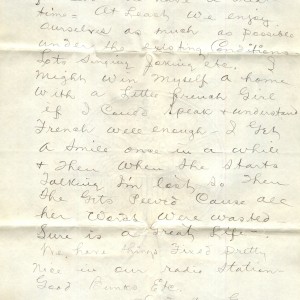 time - At Least We enjoy
ourselves as much as possible
under the existing Conditions
Lots Singing joking etc. I
Might Win Myself a home
With a Little french Girl
if I Could speak & understand
French well enough - I Get
a Smile once in a while
& Then When She Starts
Talking I'm lost, So Then
She Gits Peeved Cause all
her Words Were wasted
Sure is a Great life -
We have things Fixed pretty
Nice in our radio Station -
Good Bunks Etc.